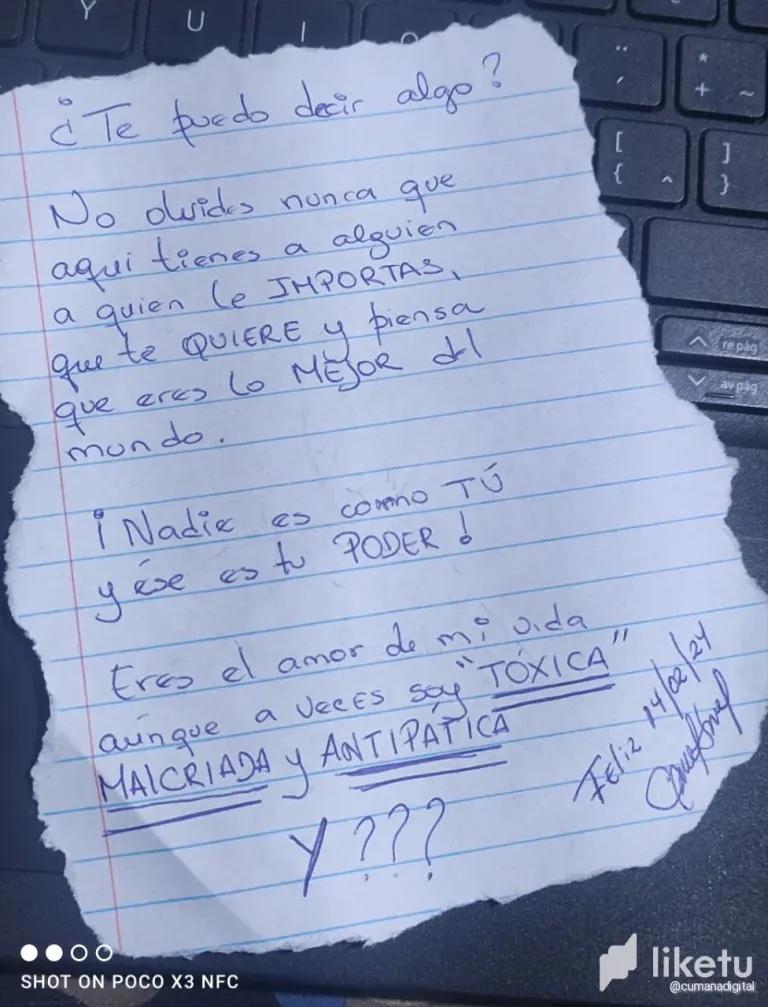 ¿Te puedo decir algo?
No olvides nunca que
aqui tienes a alguien
a quien le IMPORTAS,
que te QUIERE y piensa
que eres lo MEJOR del
mundo.
¡Nadie es como TÚ
y ése es tu PODER!
Eres el amor de mi vida
aúnque a veces soy "TÓXICA"
MALCRIADA y ANTIPÁTICA
Y???
Feliz 14/02/24
Y
U
I
O
¨
,
*
+
~
[
{
^
]
}
re pág
av pág
SHOT ON POCO X3 NFC
liketu
@cumanadigital